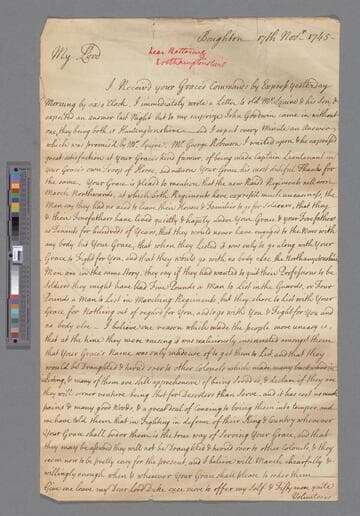 Boughton 17th Novr. 1745-
near Kettering
Northamptonshire
My Lord
I Received your Graces Commands by Express yesterday
Morning by six o Clock. I immediately wrote a Letter to old Mr. Squire & his Son &
expected an answer last Night but to my surprize John Goodwin came in without
one, they being both at Huntingdonshire and I expect every Minute an Answer
which was promised by Mr. Squire. Mr. George Robinson I waited upon & he expressed
great satisfaction at your Graces kind favour, of being made Captain Lieutenant in
your Grace's own Troop of Horse, and returns your Grace his most dutiful Thanks for
the same. Your Grace is pleased to mention that the new Raised Regiments will soon
March Northwards, at which both Regiments have expressed much uneasiness, the
Men say they had no need to leave their Houses & Families to go for Soldiers, that they
& their Forefathers have lived quietly & happily under your Grace & your Forefathers
as Tenants for hundreds of Years, that they would never have engaged to the Wars with
any body but your Grace, that when they Listed it was only to go along with your
Grace & Fight for you, and that they would go with no body else. the Northamptonshire
Men are in the same Story, they say if they had wanted to quit their Professions to be
Soldiers they might have had Five Pounds a Man to List in the Guards, or Four
Pounds a Man to List in Marching Regiments but they chose to List with your
Grace for Nothing out of regard for you, and to go with you & Fight for you and
no body else - I believe one reason which made the people more uneasy is
that at the time they were raising it was maliciously insinuated amongst them
that your Grace's Name was only made use of to get them to List and that they
would be Draughted & turned over to other Colonels which made many backward in
Listing, & many of them are still apprehensive of being Served so, & declare if they are
they will sooner venture being Shot for Deserters than Serve. and it has cost us much
pains & many good Words, & a great deal of Coaxing to bring them into temper, and
we have told them that in Fighting in defence of their King & Country whenever
your Grace shall order them is the true way of Serving your Grace, and that
they may be assured they will not be Draughted & turned over to other Colonels, & they
seem now to be pretty easy for the present, and I believe will March chearfully &
willingly enough when & wherever your Grace shall please to order them
Give me leave my Dear Lord Duke once more to offer my Self & Fifty men quite
Volunteers